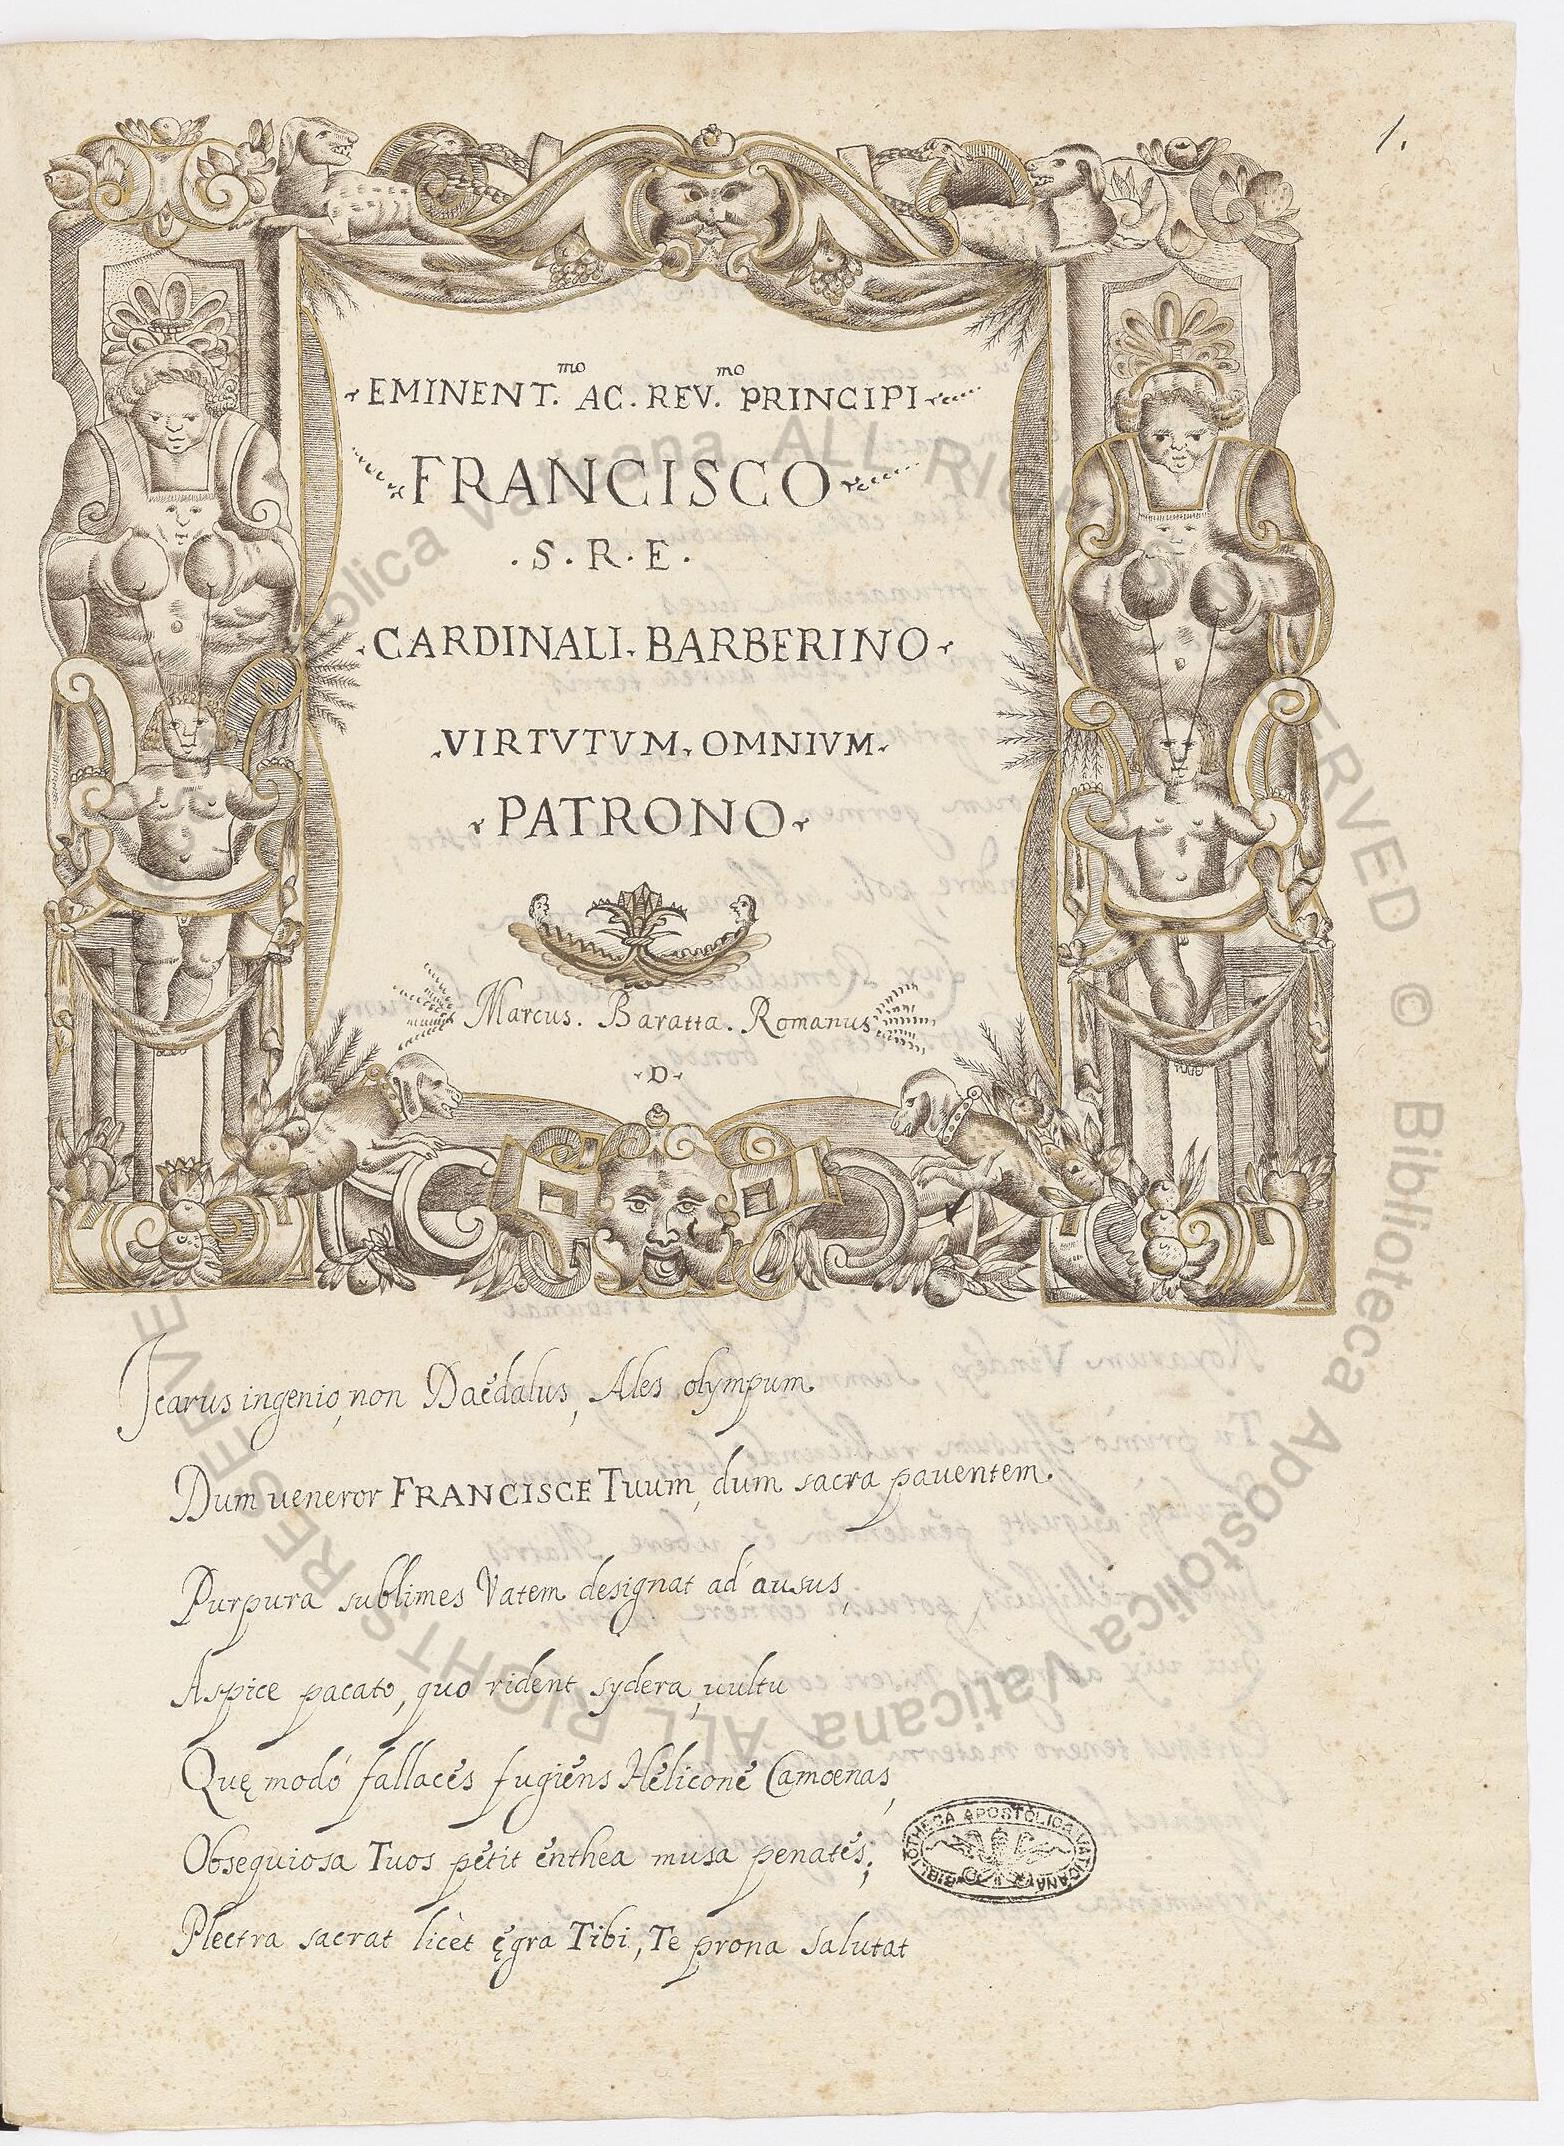 1.
EMINENT.mo AC. REV.mo PRINCIPI
FRANCISCO
.S.R.E.
CARDINALI. BARBERINO
VIRTVTVM. OMNIVM.
PATRONO
Marcus. Baratta. Romanus
D
Icarus ingenio, non Daedalus, Ales olympum
Dum ueneror FRANCISCE Tuum, dum sacra pauentem.
Purpura sublimes Vatem designat ad ausus,
Aspice pacato, quo rident sydera, uultu
Quę modó fallaces fugiens Helicone Camoenas,
Obsequiosa Tuos petit enthea musa penates;
Plectra sacrat licèt ęgra Tibi, Te prona salutat
BIBLIOTHECA APOSTOLICA VATICANA
Biblioteca Apostolica Vaticana ALL RIGHTS RESERVED © Biblioteca Apostolica Vaticana ALL RIGHTS RESERVED